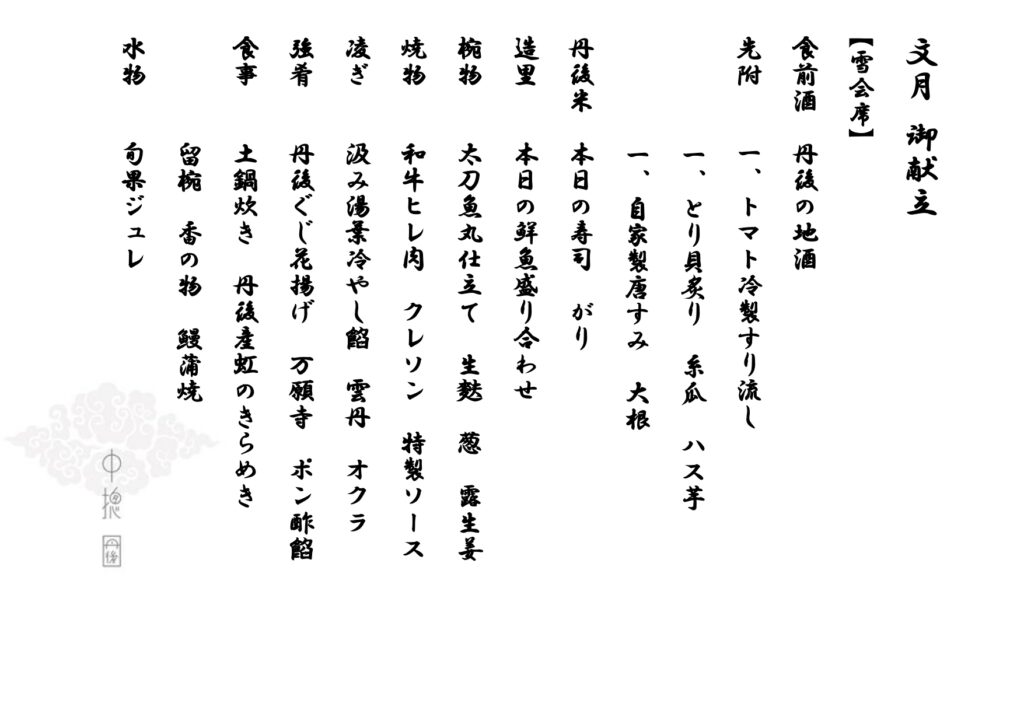 文月 御献立
【雪会席】
食前酒 丹後の地酒
先附 一、トマト冷製すり流し
一、とり貝炙り 糸瓜 ハス芋
一、自家製唐すみ 大根
丹後米 本日の寿司 がり
造里 本日の鮮魚盛り合わせ
椀物 太刀魚丸仕立て 生麩 葱 露生姜
焼物 和牛ヒレ肉 クレソン 特製ソース
凌ぎ 汲み湯葉冷やし餡 雲丹 オクラ
強肴 丹後ぐじ花揚げ 万願寺 ポン酢餡
食事 土鍋炊き 丹後産虹のきらめき
留椀 香の物 鰻蒲焼
水物 旬果ジュレ
丹後